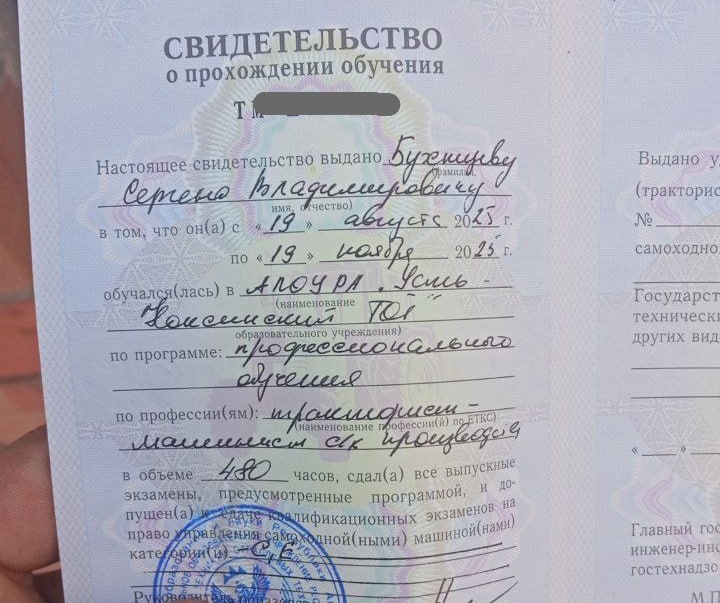 СВИДЕТЕЛЬСТВО
о прохождении обучения
Т М
Настоящее свидетельство выдано
фамилия,
Сергею Владимировичу
имя, отчество)
в том, что он(а) с «19» августа 2025 г.
по «19» ноября 2025 г.
обучался(лась) в АПОУ РА "Усть-
(наименование
Коксинский
образовательного учреждения)
по программе: профессионального
обучения
по профессии(ям): тракторист-
(наименование профессии(й) по ЕТКС)
машинист с/х производства
в объеме 480 часов, сдал(а) все выпускные
экзамены, предусмотренные программой, и до-
пущен(а) к сдаче квалификационных экзаменов на
право управления самоходной(ными) машиной(нами)
категории(й) - С Е
Руководитель
Выдано
(тракторис
№
самоходно
Государст
техническ
других вид
« »
Главный гос
инженер-инс
гостехнадзо
М.П